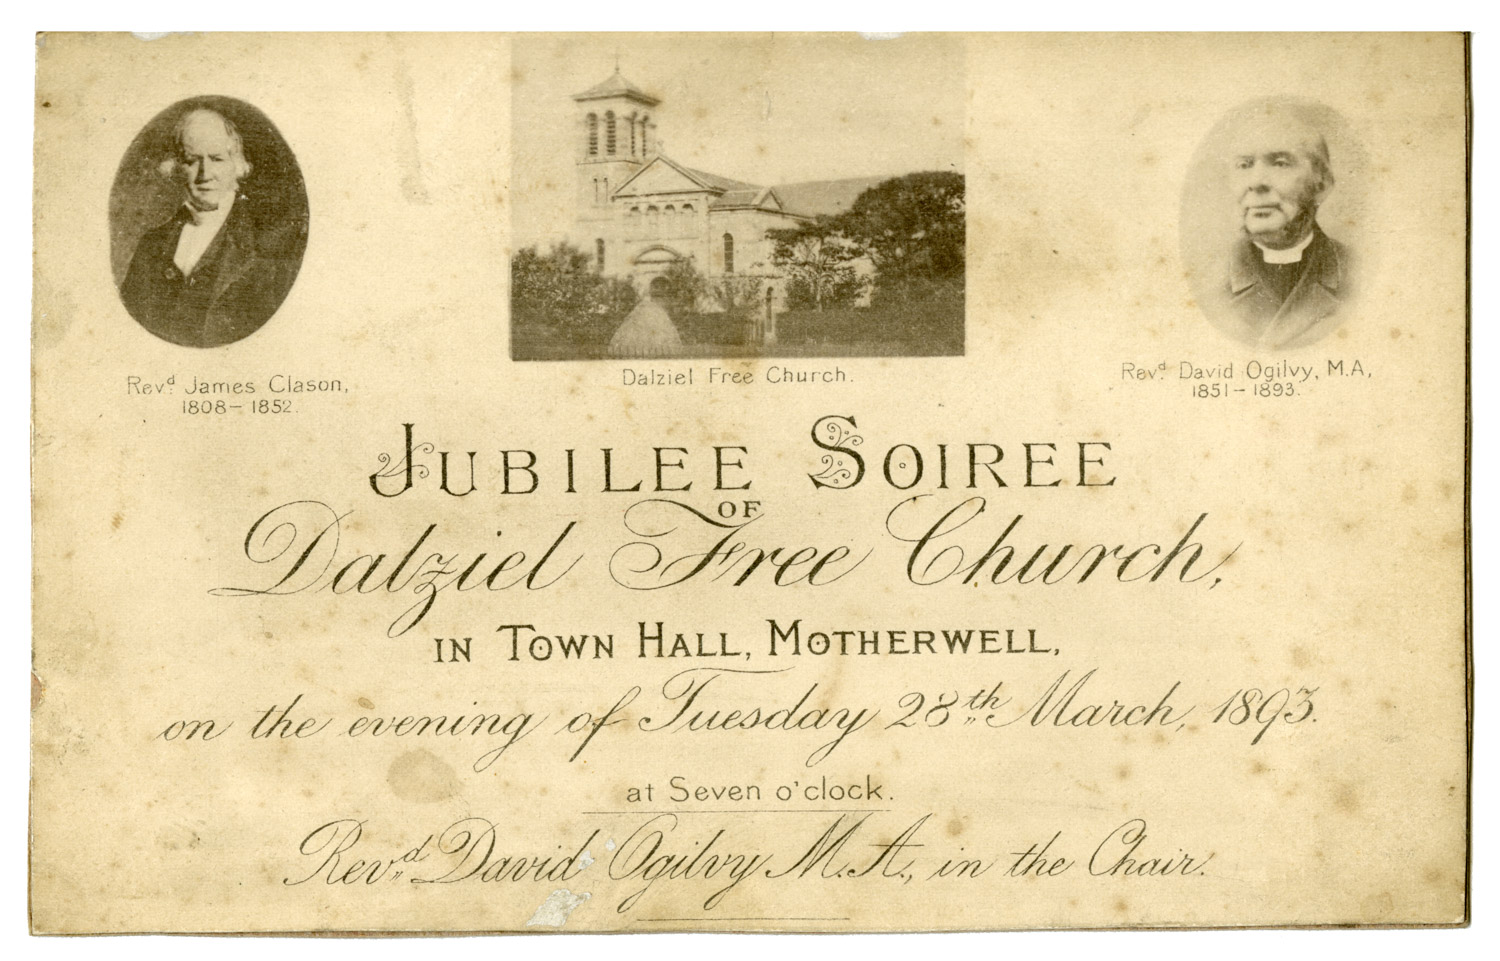 Revd. James Clason,
1808 – 1852.
Dalziel Free Church.
Revd. David Ogilvy, M.A,
1851 – 1893.
JUBILEE SOIREE
OF
Dalziel Free Church,
IN TOWN HALL, MOTHERWELL,
on the evening of Tuesday 28th March, 1893.
at Seven o'clock.
Revd. David Ogilvy M.A., in the Chair.